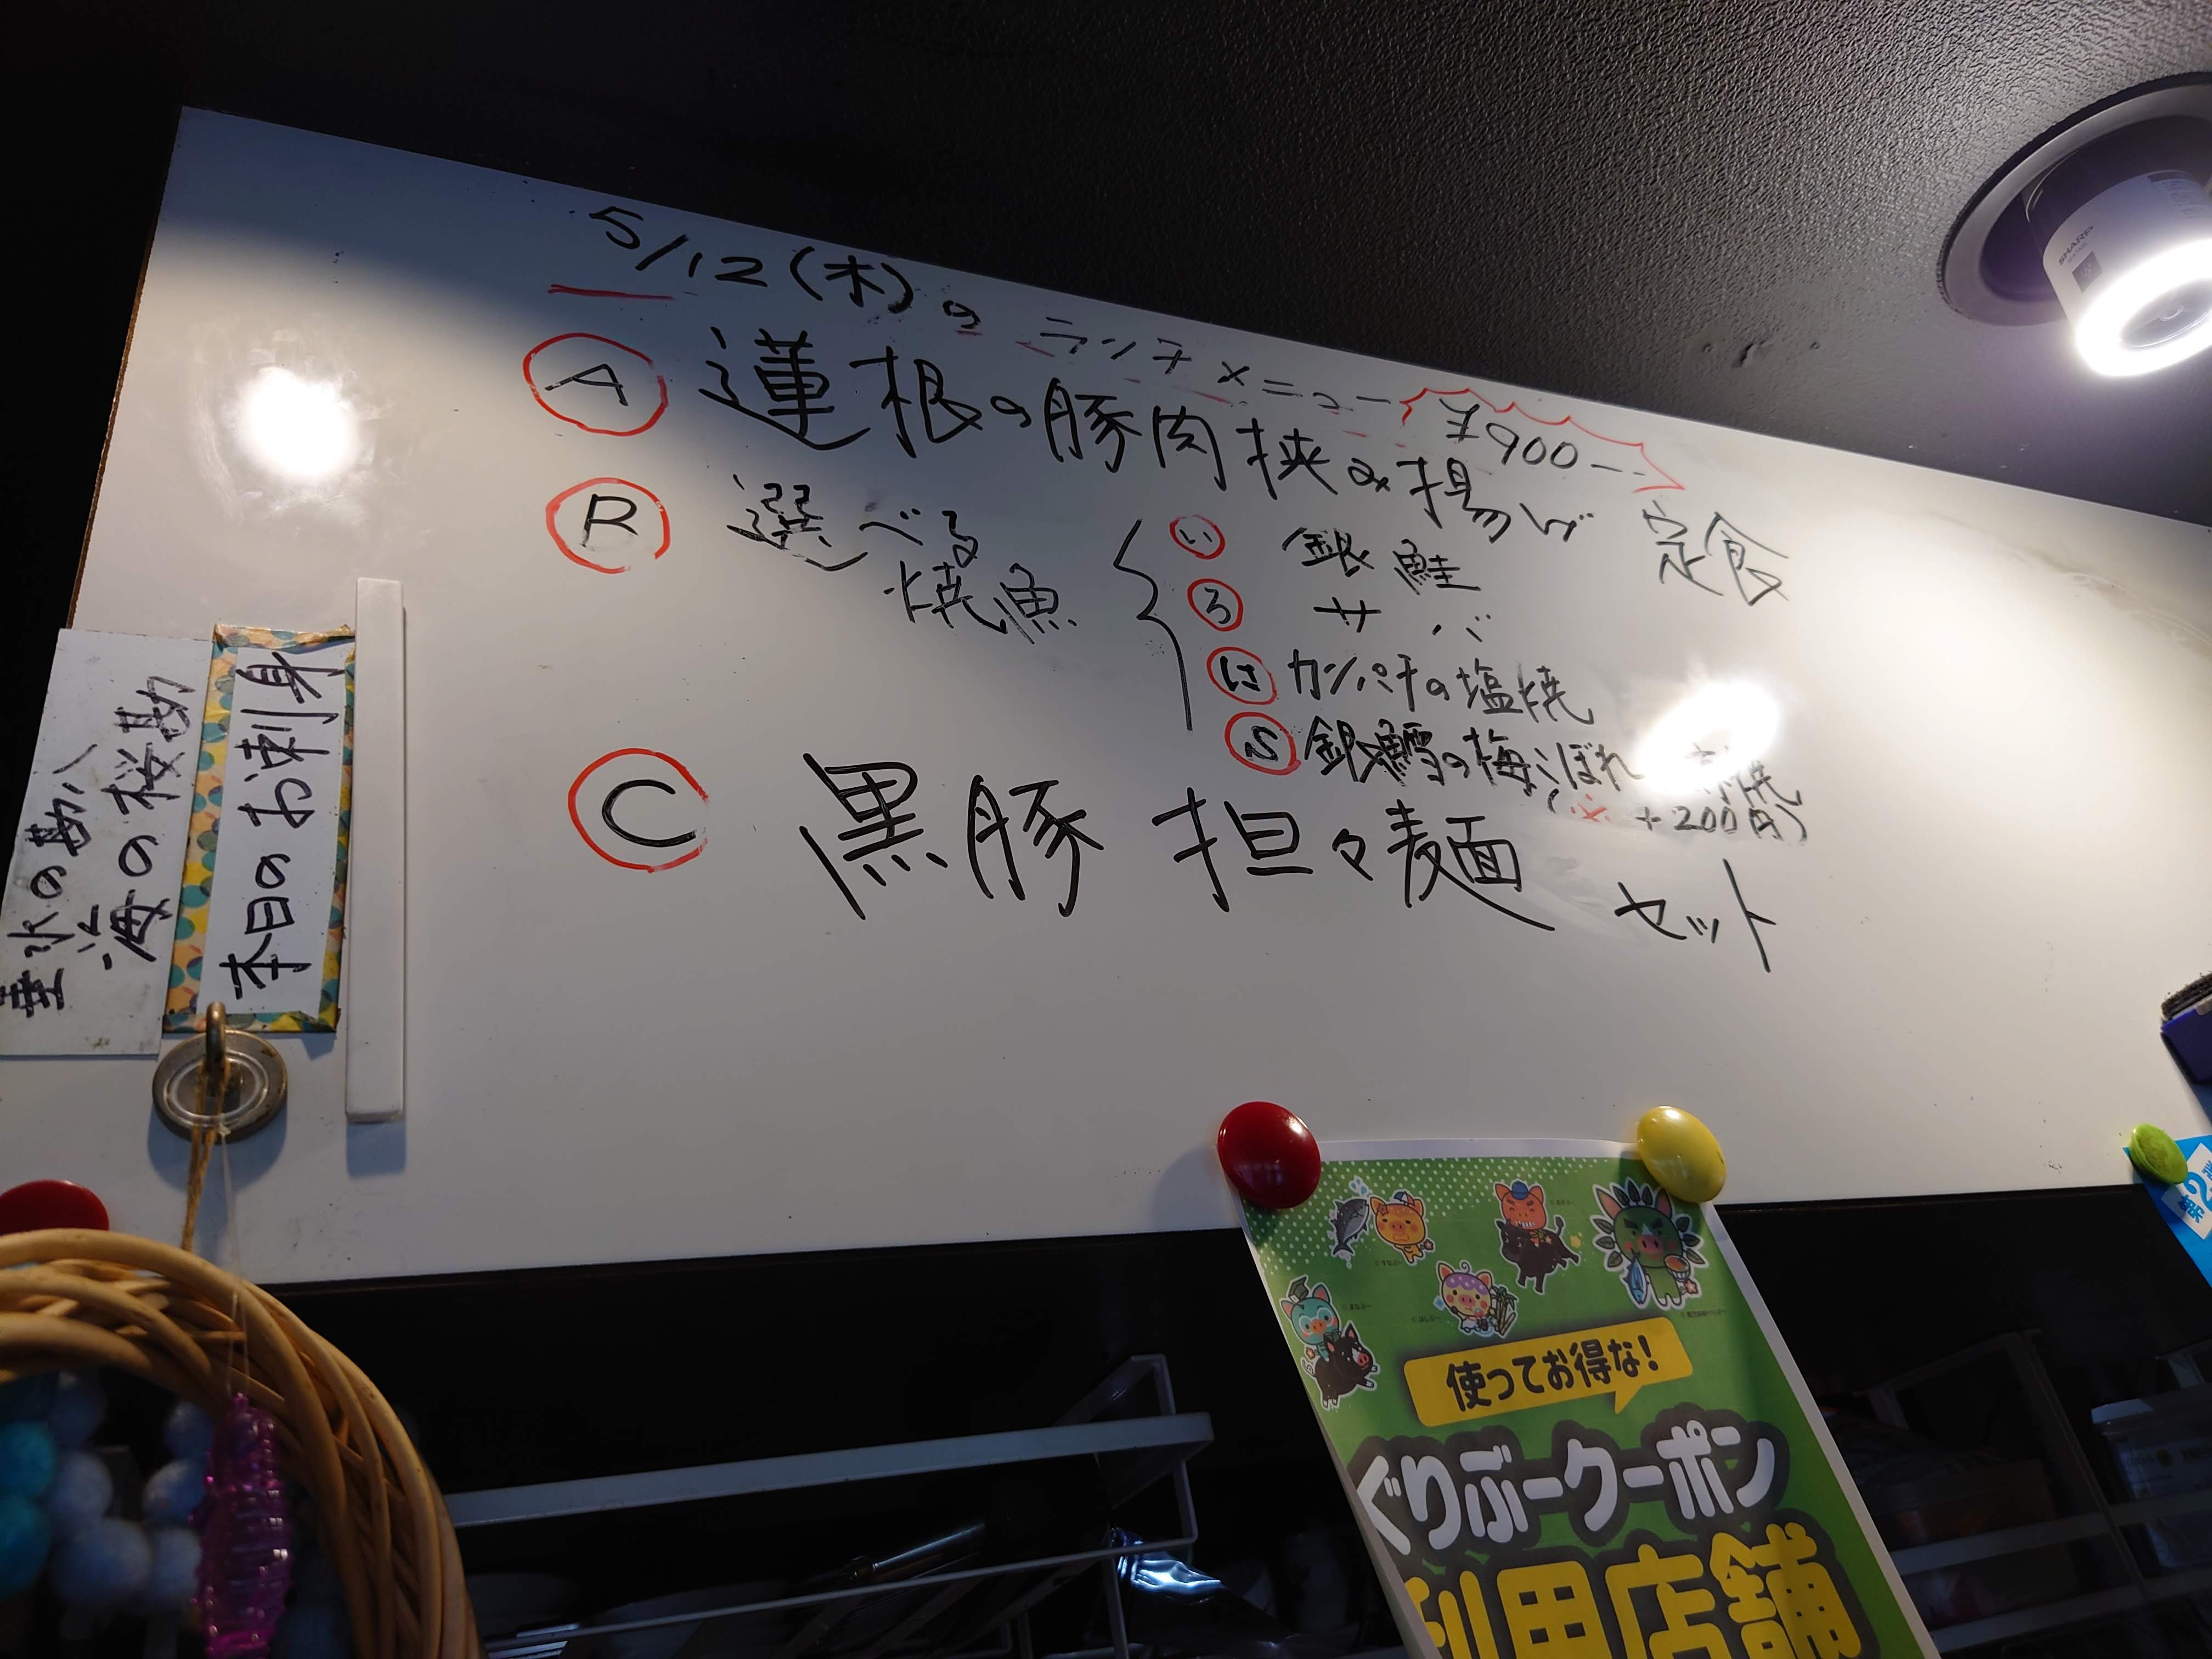 5/12(木)のランチメニュー ¥900-
A 蓮根の豚肉挟み揚げ 定食
B 選べる
焼魚
い 銀鮭
ろ サバ
は カンパチの塩焼
S 銀鱈の梅こぼれ 焼
(※ +200円)
C 黒豚 担々麺 セット
本日のお刺身
海の桜勘
SHARP
使ってお得な!
ぐりぶークーポン
利用店舗